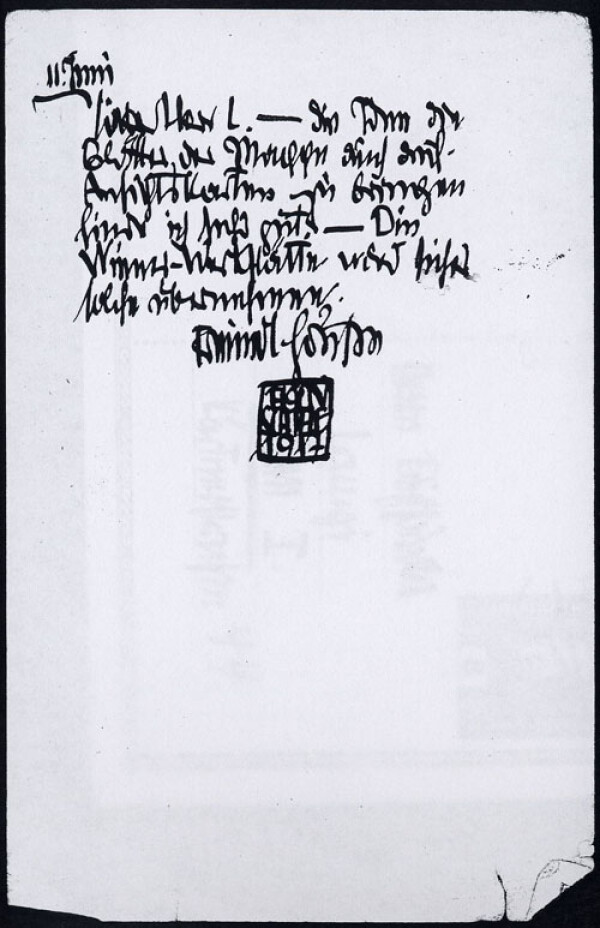 11. Juni
Lieber Herr L. — die Idee die
Blätter der Mappe auch auf
Ansichtskarten zu bringen
finde ich sehr gut. — Die
Wiener-Werkstätte wird sicher
solche übernehmen.
EGON
1911